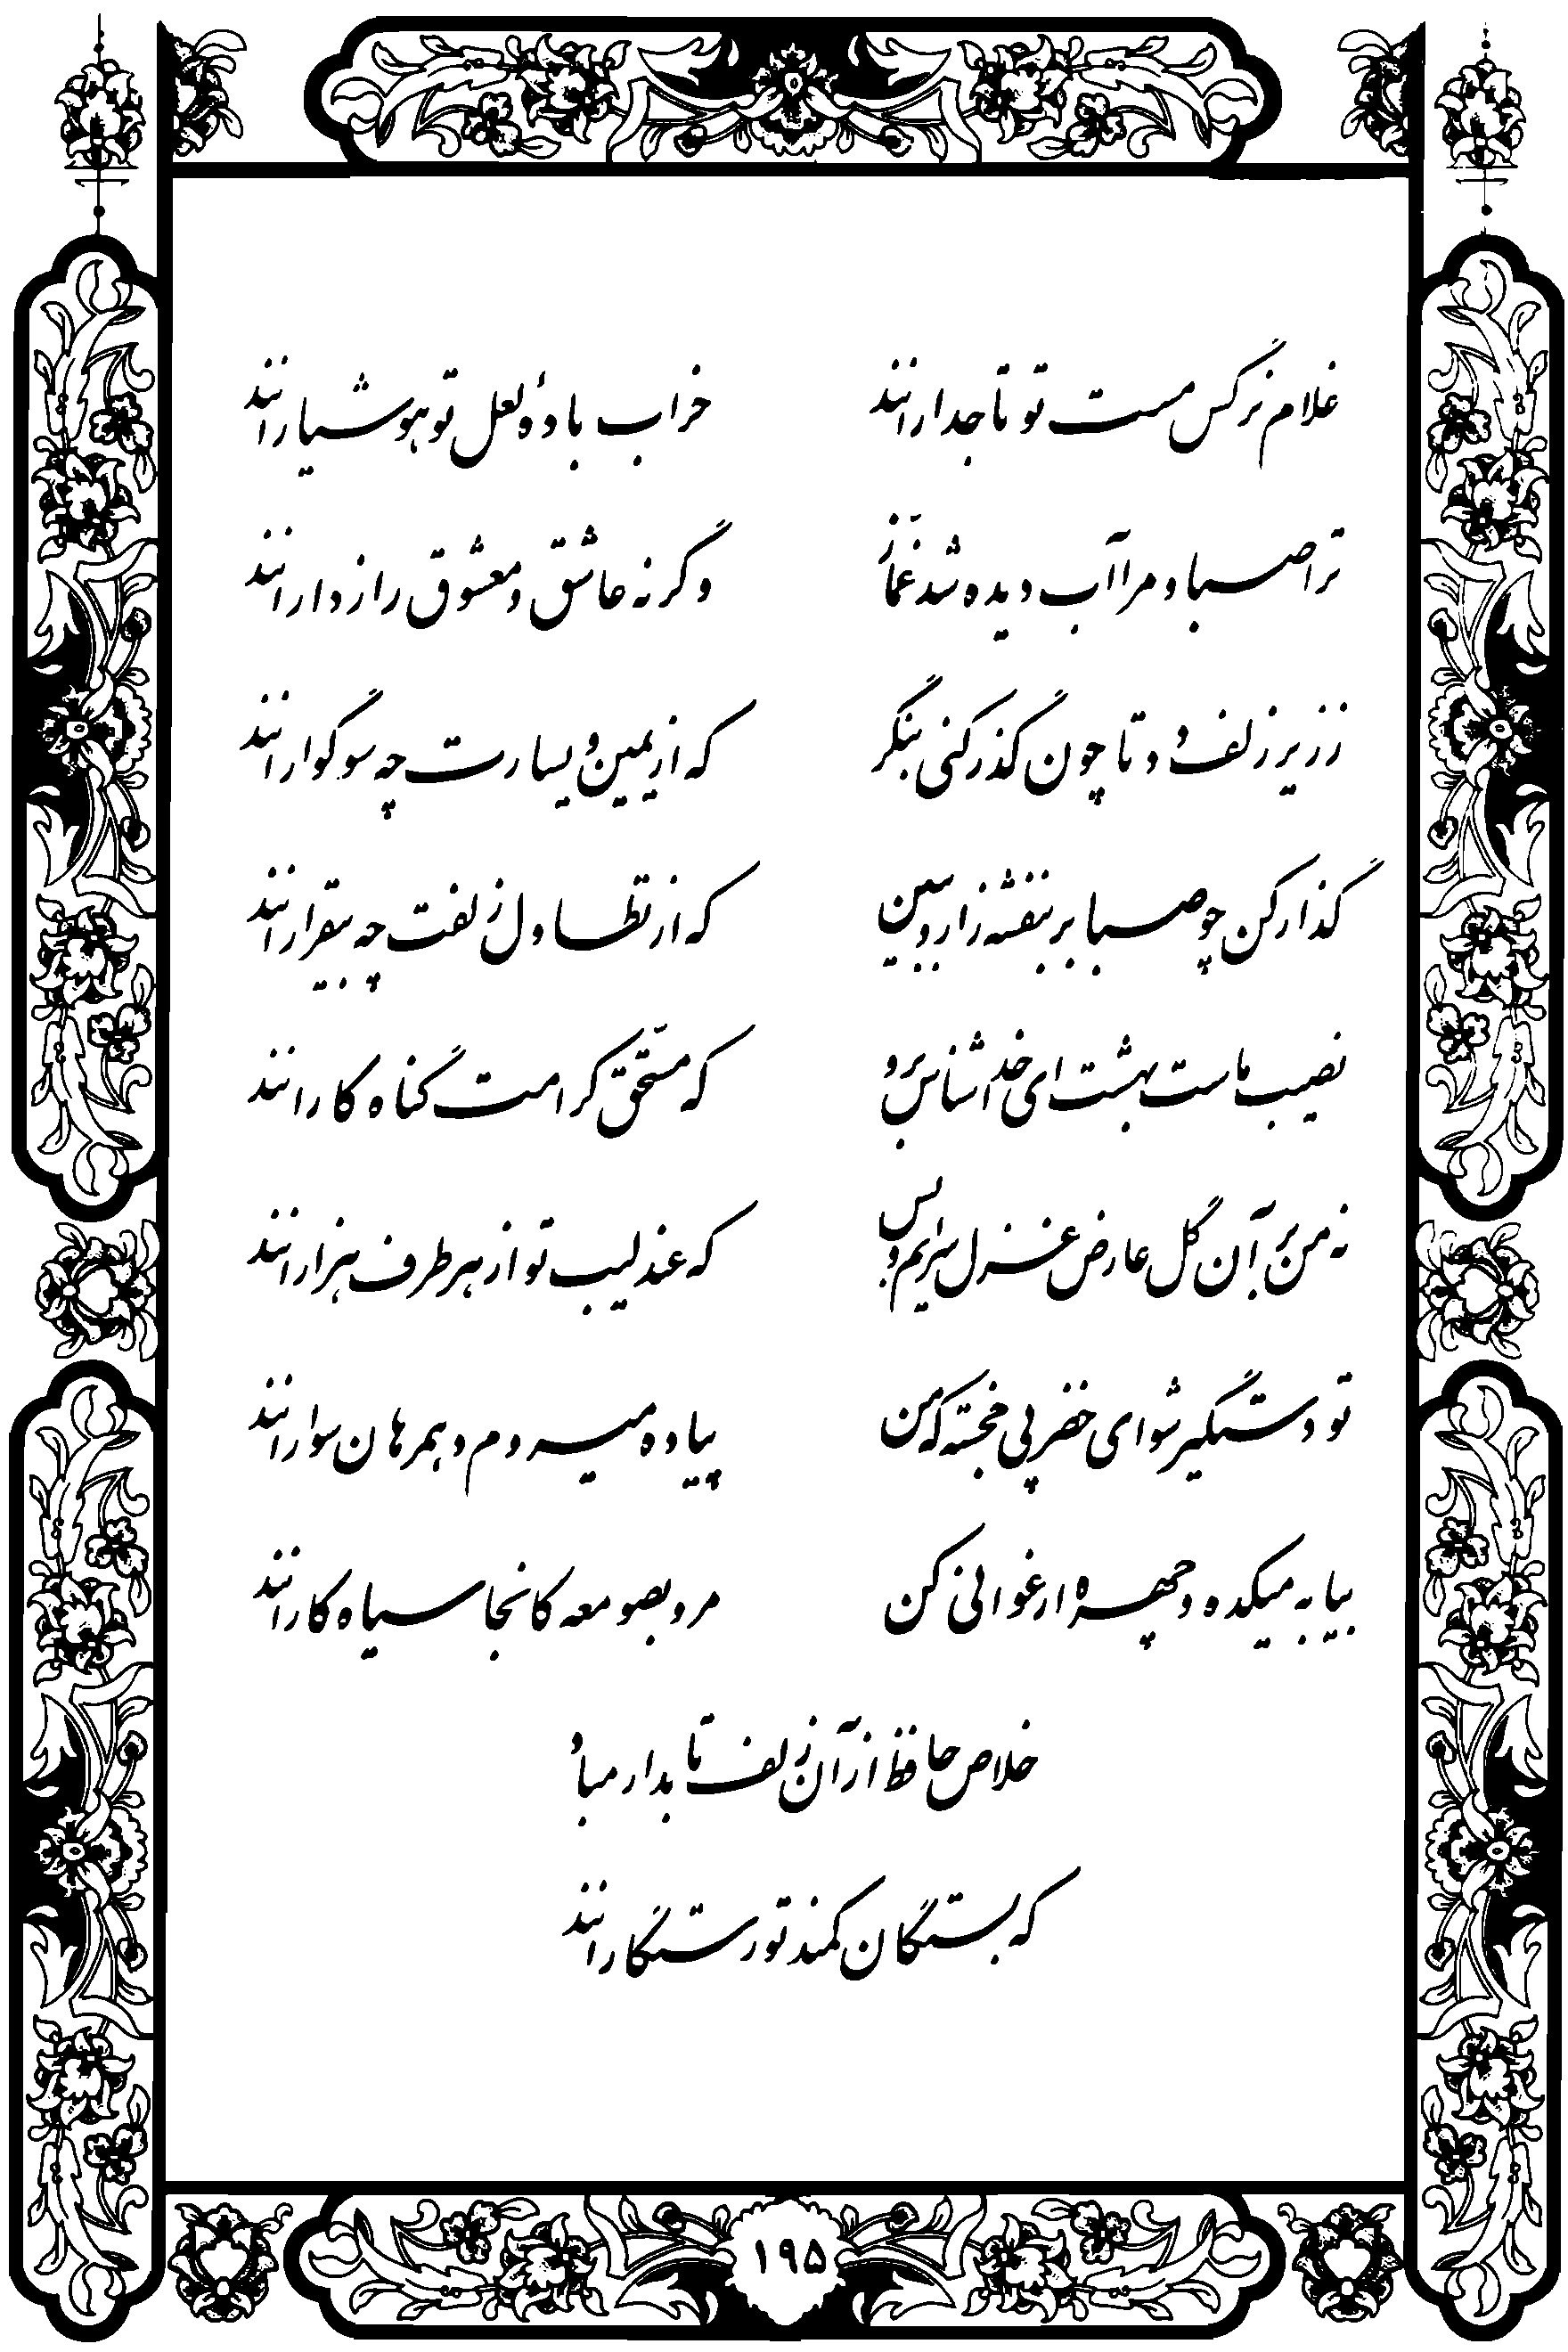 غلام نرگس مست تو تاجدارانند
خراب بادهٔ لعل تو هوشیارانند
ترا صبا و مرا آب دیده شد غمّاز
وگرنه عاشق و معشوق رازدارانند
ز زیر زلف دو تا چون گذر کنی بنگر
که از یمین و یسارت چه سوگوارانند
گذار کن چو صبا بر بنفشه زار و ببین
که از تطاول زلفت چه بیقرارانند
نصیب ماست بهشت ای خداشناس برو
که مستحقّ کرامت گناه کارانند
نه من بر آن گل عارض غزل سرایم و بس
که عندلیب تو از هر طرف هزارانند
تو دستگیر شو ای خضر پی خجسته که من
پیاده میروم و همرهان سوارانند
بیا به میکده و چهره ارغوانی کن
مرو بصومعه کانجا سیاه کارانند
خلاص حافظ از آن زلف تابدار مباد
که بستگان کمند تو رستگارانند
۱۹۵